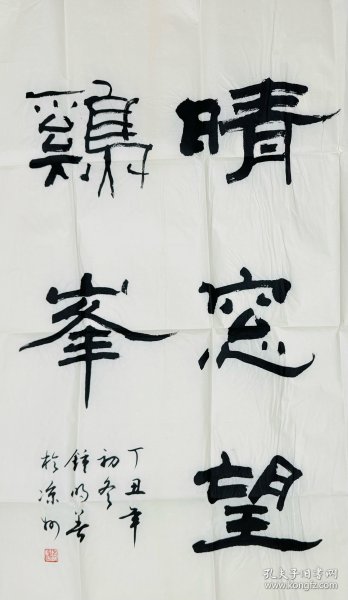 晴窗望
鷄峯
丁丑年
初冬
鍾明善
於涼州
孔夫子旧书网